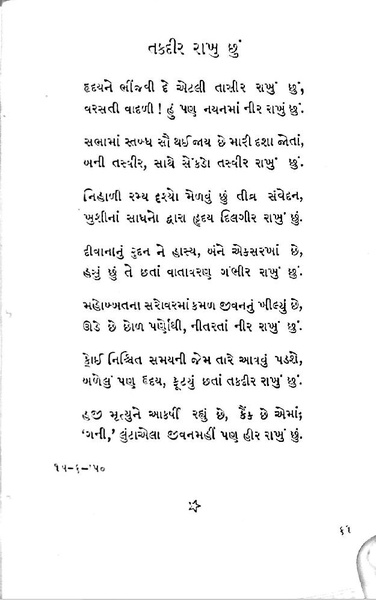 તકદીર રાખુ છું
હૃદયને ભીંજવી દે એટલી તાસીર રાખું છું,
વરસતી વાદળી ! હું પણ નયનમાં નીર રાખું છું.
સભામાં સ્તબ્ધ સૌ થઈ જાય છે મારી દશા જોતાં,
બની તસ્વીર, સાથે સેંકડો તસ્વીર રાખું છું.
નિહાળી રમ્ય દૃશ્યો મેળવું છું તીવ્ર સંવેદન,
ખુશીનાં સાધનો દ્વારા હૃદય દિલગીર રાખું છું.
દીવાનાનું રુદન ને હાસ્ય, બંને એકસરખાં છે,
હસું છું તે છતાં વાતાવરણ ગંભીર રાખું છું.
મહોબ્બતના સરોવરમાં કમળ જીવનનું ખીલ્યું છે,
ઊડે છે છોળ પર્ણોથી, નીતરતાં નીર રાખું છું.
કોઈ નિશ્ચિત સમયની જેમ તારે આવવું પડશે,
બળેલું પણ હૃદય, ફૂટ્યું છતાં તકદીર રાખું છું.
હજી મૃત્યુને આકર્ષી રહ્યું છે, કૈંક છે એમાં;
‘ગની,’ લુંટાએલા જીવનમહીં પણ હીર રાખું છું.
૧૫-૬-’૫૦
૬૧